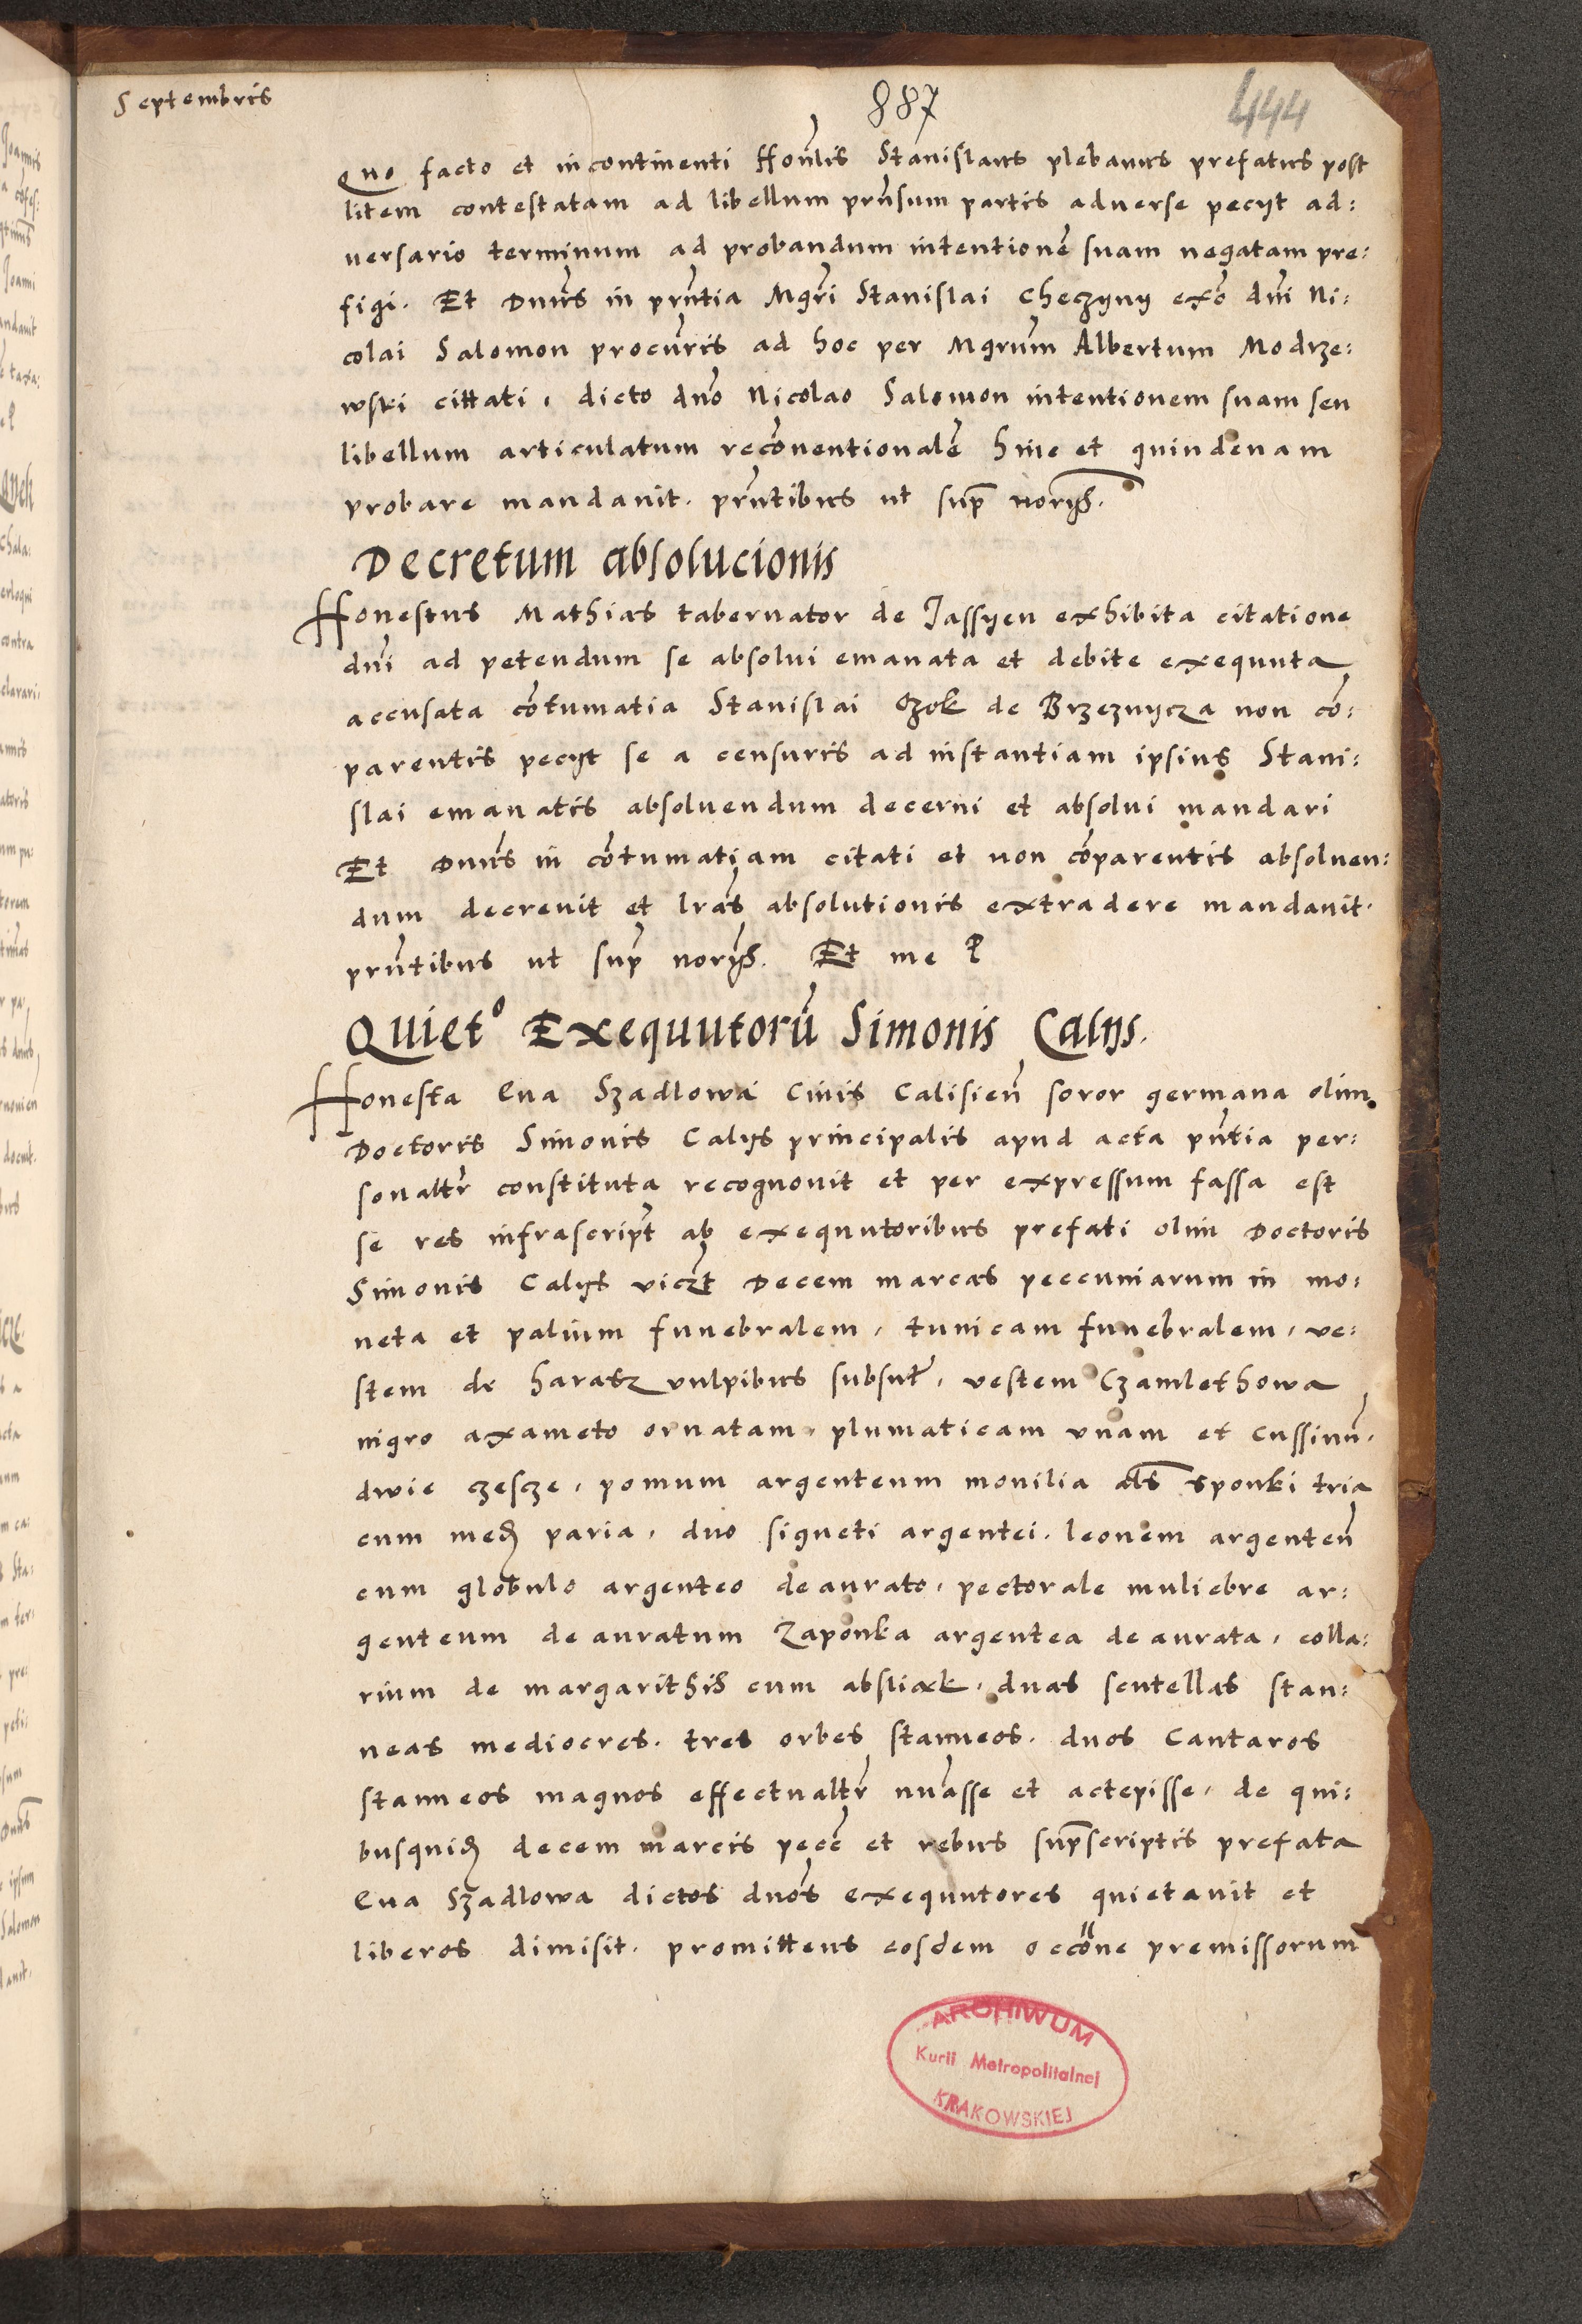 Septembris
887
444
Quo facto et incontinenti Honlis Stanislaus plebanus prefatus post
litem contestatam ad libellum prnsum partis adverse pecyt ad:
versario terminum ad probandum intentionē suam negatam pre:
figi. Et Dnus in prntia Mgri Stanislai Checzyny exo dni Ni:
colai Salomon procuris ad hoc per Mgrum Albertum Modrze:
wski cittati, dicto dno Nicolao Salomon intentionem suam seu
libellum articulatum reconventionalē hinc et quindenam
probare mandavit. prntibus ut sup norys.
Decretum absolucionis
Honestus Mathias tabernator de Jassyen exhibita citatione
dni ad petendum se absolui emanata et debite exequuta
accusata cōtumatia Stanislai Czok de Brzeznycza non cō:
parentis pecyt se a censuris ad instantiam ipsius Stani:
slai emanatis absoluendum decerni et absolui mandari
Et Dnus in cōtumatiam citati et non cōparentis absoluen:
dum decrevit et lras absolutionis extradere mandavit.
prntibus ut sup norys. Et me P
Quiet° Exequutorū Simonis Calys.
Honesta Eva Szadlowa Civis Calisień soror germana olim
Doctoris Simonis Calys principalis apud acta pntia per:
sonaltr constituta recognovit et per expressum fassa est
se res infrascript ab exequutoribus prefati olim Doctoris
Simonis Calys viczt Decem marcas peccuniarum in mo:
neta et palium funebralem, tunicam funebralem, ve:
stem de harasz vulpibus subsut, vestem Czamlethowa
nigro axameto ornatam, plumaticam vnam et cussinū,
dwie czescze, pomum argenteum monilia als sponki tria
cum med paria, duo signeti argentei. leonem argenteū
cum globulo argenteo deaurato, pectorale muliebre ar:
genteum deauratum Zaponka argentea deaurata, colla:
rium de margarithis cum absliack, duas scutellas stan:
neas mediocres. tres orbes stanneos. duos Cantaros
stanneos magnos effectualtr nuasse et actepisse, de qui:
busquid decem marcis pecc et rebus supscriptis prefata
Eva Szadlowa dictos dnos exequutores quietavit et
liberos dimisit. promittens eosdem occōne premissorum
ARCHIWUM
Kurii Metropolitalnej
KRAKOWSKIEJ